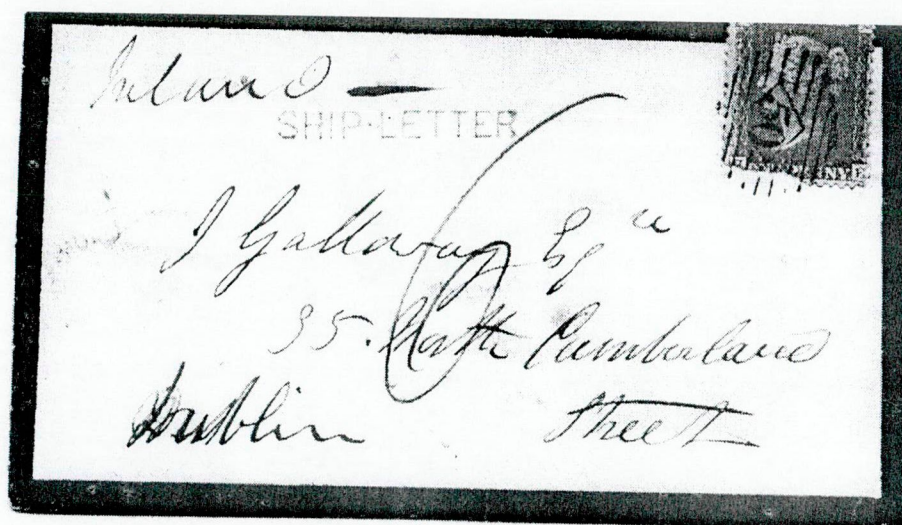 Ireland —
SHIP-LETTER
6
J Galloway Esqre
35. North Cumberland
Dublin Street